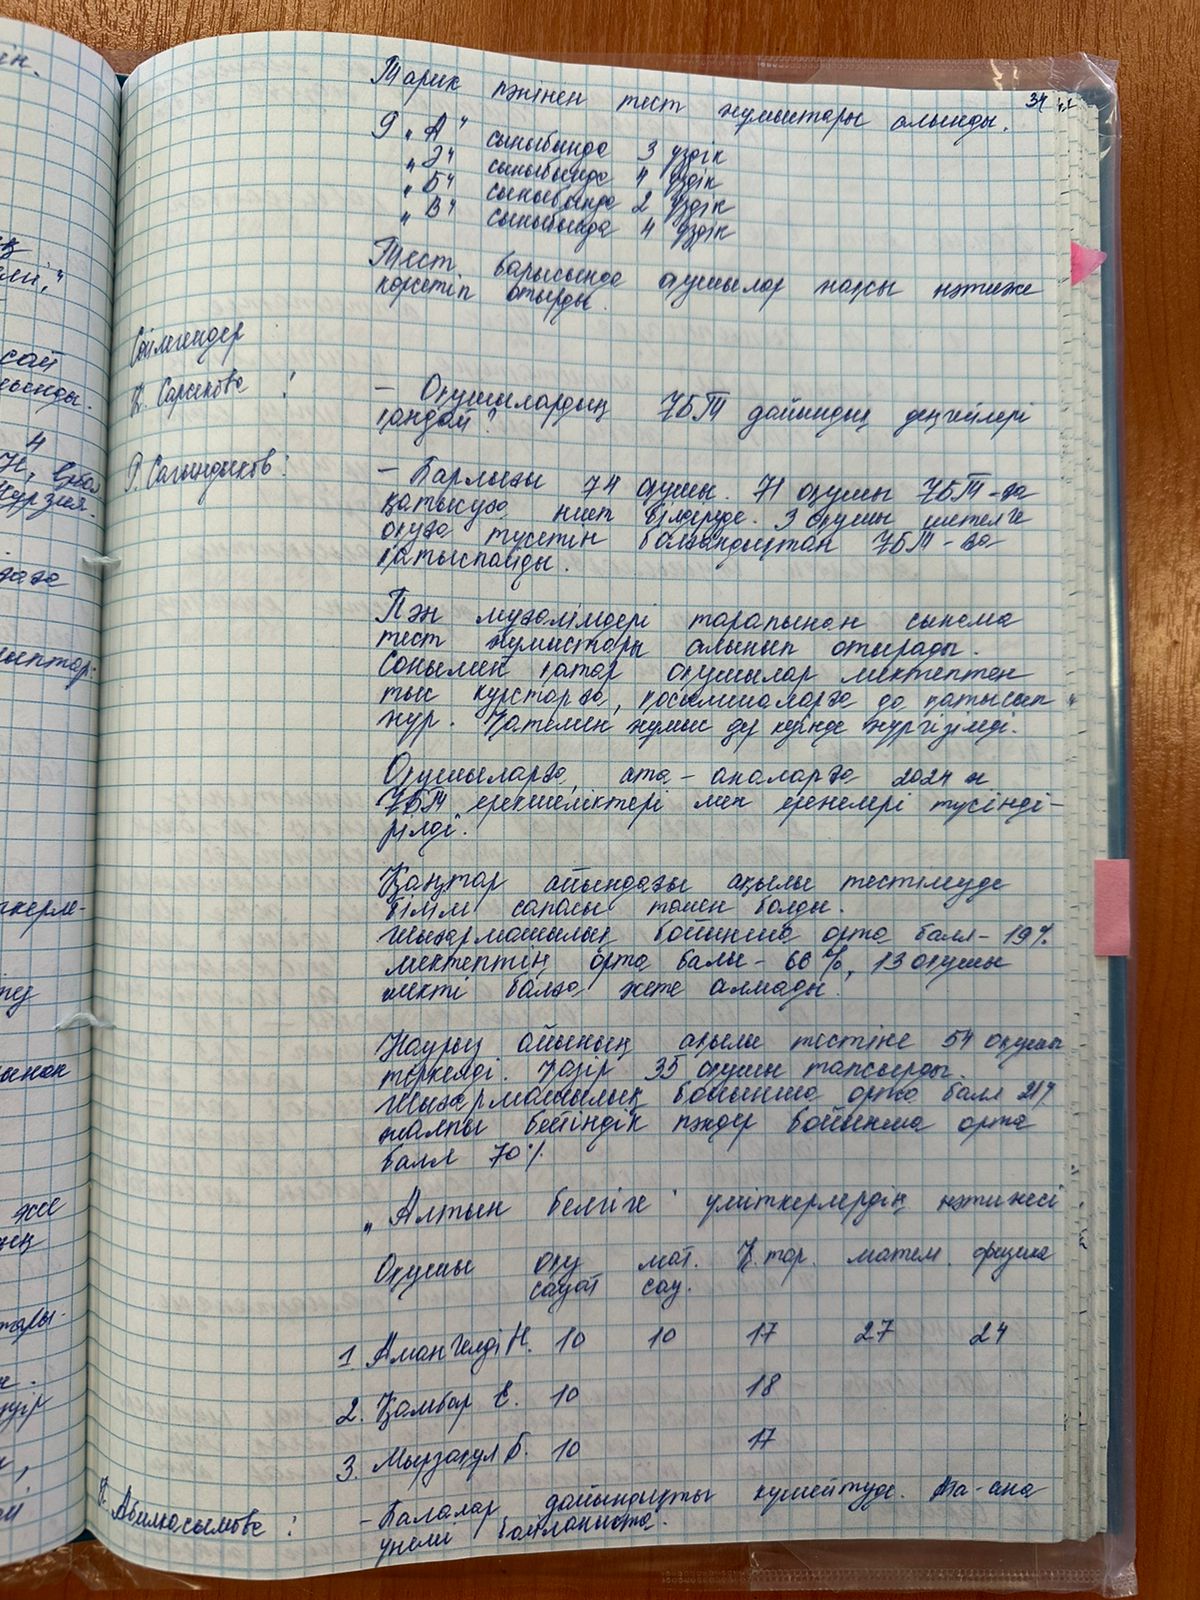 34
Тарих пәнінен тест жұмыстары алынды.
9 „А" сыныбында 3 үздік
„Ә" сыныбында 4 үздік
„Б" сыныбында 2 үздік
„В" сыныбында 4 үздік
Тест барысында оқушылар жақсы нәтиже
көрсетіп отырды.
Сөйлегендер:
: – Оқушылардың ҰБТ дайындық деңгейлері
қандай?
Р. Сағындықов: – Барлығы 74 оқушы. 71 оқушы ҰБТ-ға
қатысуға ниет білдіруде. 3 оқушы шетелге
оқуға түсетін болғандықтан ҰБТ-ға
қатыспайды.
Пән мұғалімдері тарапынан сынама
тест жұмыстары алынып отырады.
Сонымен қатар оқушылар мектептен
тыс курстарға, қосымшаларға да қатысып
жүр. Қатемен жұмыс күнде жүргізіледі.
Оқушыларға, ата-аналарға 2024 ж
ҰБТ ерекшеліктері мен ережелері түсінді-
рілді.
Қаңтар айындағы ақылы тестілеуде
білім сапасы төмен болды.
Шығармашылық бойынша орта балл – 19%
мектептің орта балы – 66%, 13 оқушы
шекті балға жете алмады.
Наурыз айының ақылы тестіне 54 оқушы
тіркелді. Қазір 35 оқушы тапсырды.
Шығармашылық бойынша орта балл
жалпы бейіндік пәндер бойынша орта
балл 70%
„Алтын белгіге" үміткерлердің нәтижесі
Оқушы оқу мат. Қ.тар. матем. физика
сауат сау.
1 Амангелді Н. 10 10 17 27 24
2. Қамбар Е. 10 18
3. Мырзақұл Б. 10 17
Абилкасымова: – Балалар дайындықты күшейтуде. Ата-ана
үнемі байланыста.